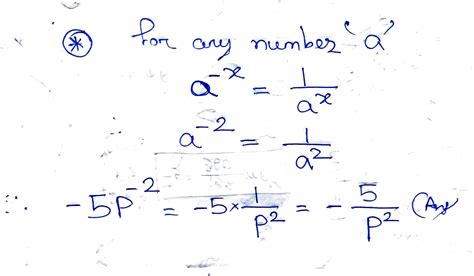 * for any number 'a'
a⁻ˣ = 1/aˣ
a⁻² = 1/a²
∴ -5p⁻² = -5×1/p² = -5/p² (Ans